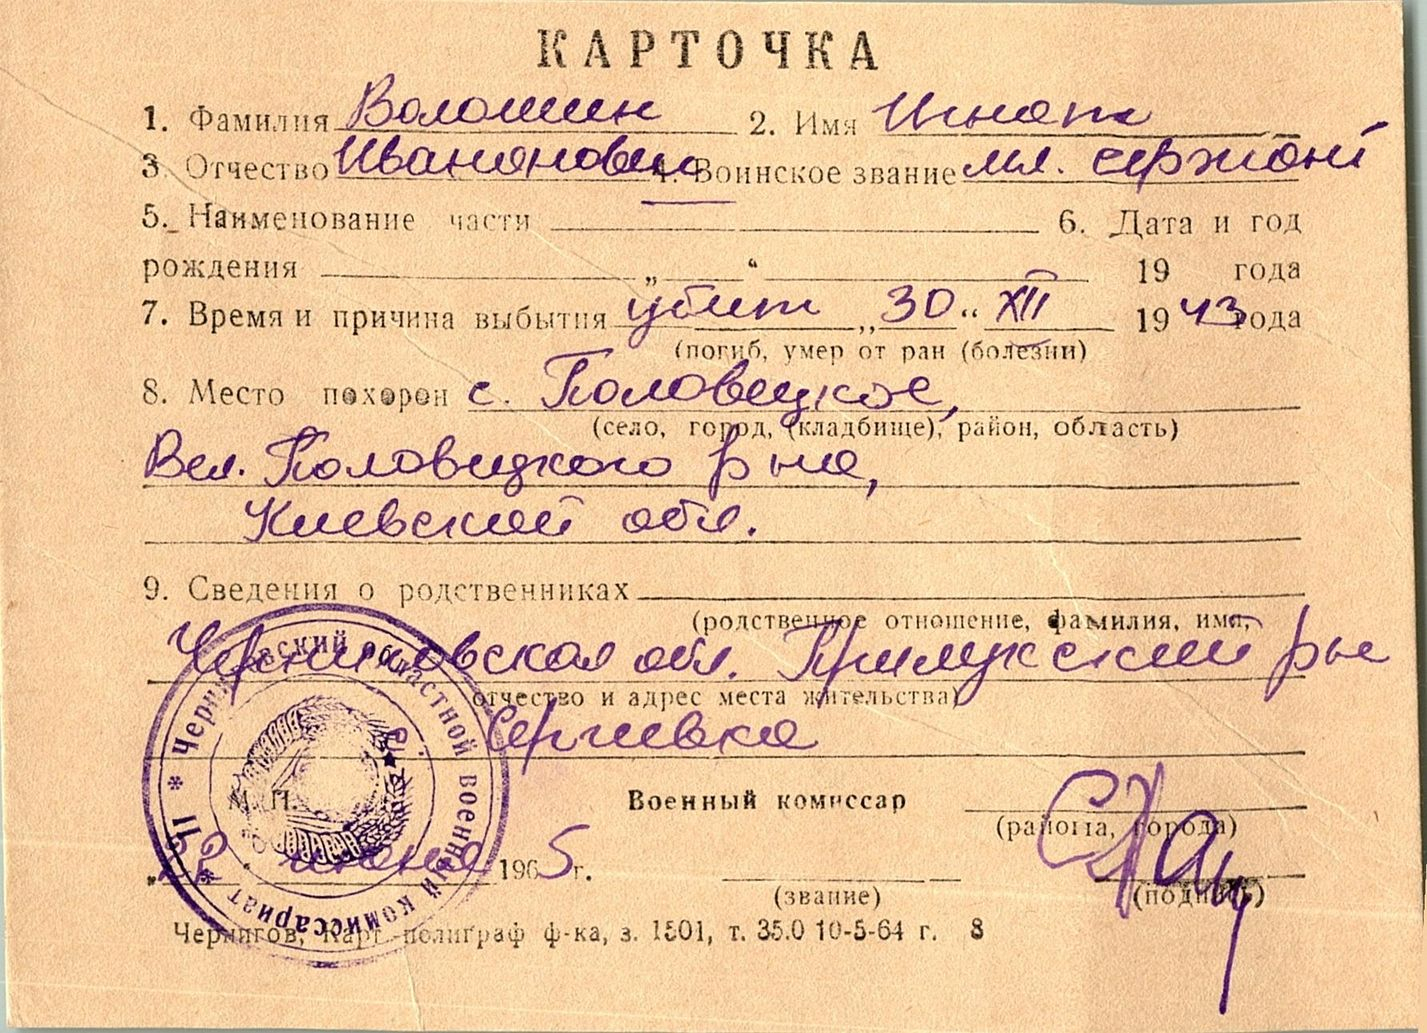 КАРТОЧКА
1. Фамилия Волошин 2. Имя Игнат
3. Отчество Иванович 4. Воинское звание мл. сержант
5. Наименование части 6. Дата и год
рождения „ “ 19 года
7. Время и причина выбытия убит „30“ XII 1943 года
(погиб, умер от ран (болезни)
8. Место похорон с. Половецкое,
(село, город, (кладбище), район, область)
Вел. Половецкого р-на,
Киевской обл.
9. Сведения о родственниках
(родственное отношение, фамилия, имя,
Черниговская обл. Прилукский р-н
отчество и адрес места жительства)
Сергиевка
М. П. Военный комиссар
(района, города)
июня 1965 г.
(звание) (подпись)
Чернигов, Карт.-полиграф ф-ка, з. 1501, т. 35.0 10-5-64 г. 8
* Черниговский областной военный комиссариат *